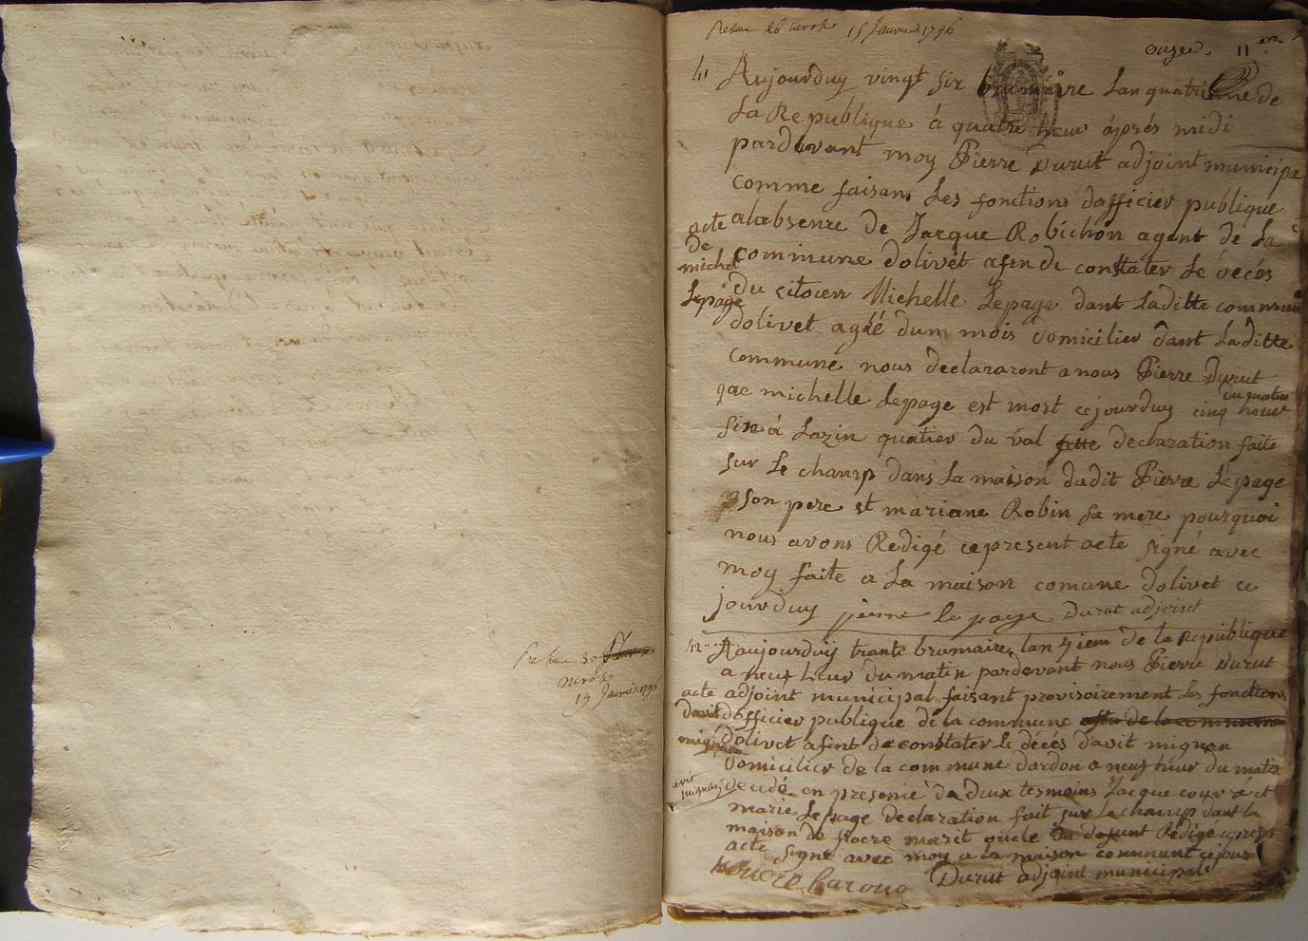 15 Janvier 1796
onze 11
11 Aujourduy vingt six brumaire Lan quatrieme de
La Republique á quatre heur áprés midi
pardevant moy Pierre Durut adjoint municipa
comme faisans Les fonctions dafficier publique
alabsence de Jacque Robichon agent de La
commune dolivet afin de constater Le décés
du sitoien Michelle Lepage dant Laditte commune
dolivet agéé dum mois domicilier dant Laditte
communé nous declararont a nous Pierre Durut
que michelle Lepage est mort cejourduy cinq heur
du matin
á Lazin quatier du val fette declaration faite
sur Le champ dans La maison dudit Pierre Lepage
son pere et mariane Robin sa mere pourquoi
nous avons Redigé cepresent acte signé avec
moy faite a La maison comune dolivet ce
jourduy pierre le page Durut adjoint
acte
De
michel
Lepage
12 Aaujourduij trante brumaire lan 4 iem de la Republique
a neuf heur du matin pardevant nous Pierre Durut
adjoint municipal faisant provisoirement les fonctions
dofficier publique de la commune de la commune
dolivet afint de constater le décés davit mignon
domicilier de la commune dardon a neuf heur du matin
decedé en presence de deux tesmoins Jacque couvret
marie Lepage declaration fait sur le champ dant la
maison de marit du defunt Redige
acte signé avec moy a la maison commune cejour
Durut adjoint municipale
acte
davit
mignon
19 Janvier 1796